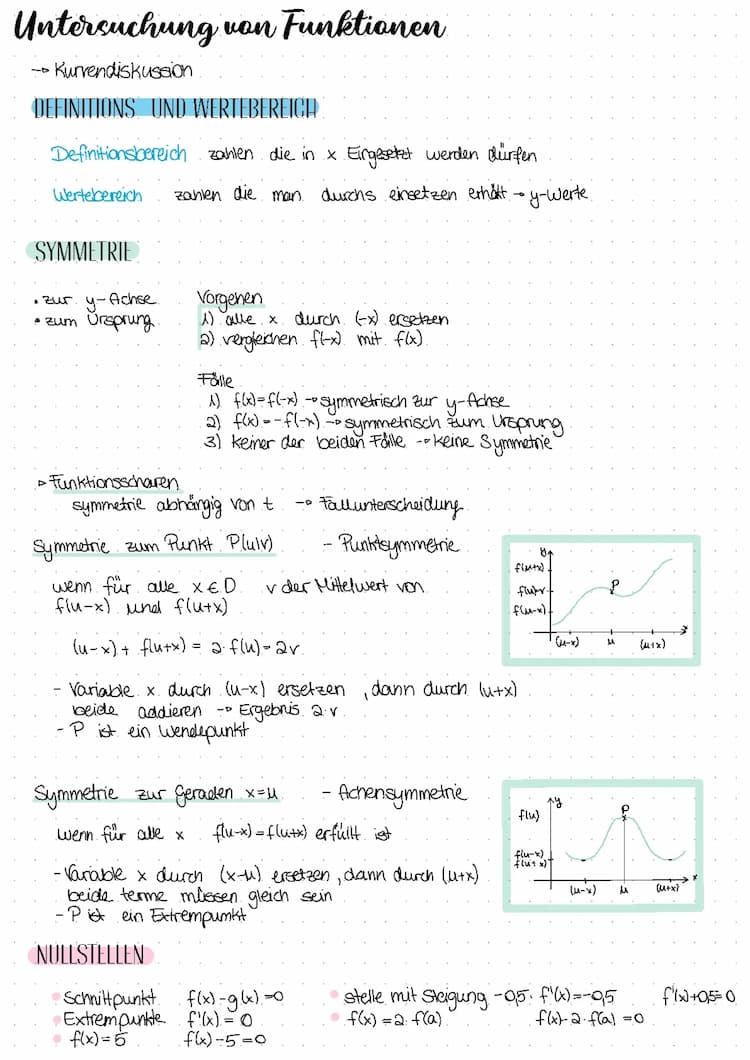 Untersuchung von Funktionen
→ Kurvendiskussion
DEFINITIONS UND WERTEBEREICH
Definitionsbereich zahlen die in x Eingesetzt werden dürfen
Wertebereich zahlen die man durchs einsetzen erhält → y-Werte
SYMMETRIE
• zur y-Achse
• zum Ursprung
Vorgehen
1) alle x durch (-x) ersetzen
2) vergleichen f(-x) mit f(x)
Fälle
1) f(x)=f(-x) → symmetrisch zur y-Achse
2) f(x)=-f(-x) → symmetrisch zum Ursprung
3) keiner der beiden Fälle → keine Symmetrie
▹ Funktionsscharen
symmetrie abhängig von t → Fallunterscheidung
Symmetrie zum Punkt P(u|v) - Punktsymmetrie
wenn für alle x∈D v der Mittelwert von
f(u-x) und f(u+x)
(u-x)+ f(u+x) = 2·f(u)=2v
- Variable x durch (u-x) ersetzen, dann durch (u+x)
beide addieren → Ergebnis 2·v
- P ist ein Wendepunkt
y
f(u+x)
f(u)=v
f(u-x)
P
(u-x) u (u+x) x
Symmetrie zur Geraden x=u - Achensymmetrie
wenn für alle x f(u-x)=f(u+x) erfüllt ist
- Variable x durch (x-u) ersetzen, dann durch (u+x)
beide terme müssen gleich sein
- P ist ein Extrempunkt
y
f(u)
P
f(u-x)
f(u+x)
(u-x) u (u+x) x
NULLSTELLEN
• Schnittpunkt f(x)-g(x)=0
• Extrempunkte f'(x)=0
• f(x)=5 f(x)-5=0
• stelle mit Steigung -0,5 f'(x)=-0,5 f'(x)+0,5=0
• f(x)=2·f(a) f(x)-2·f(a)=0